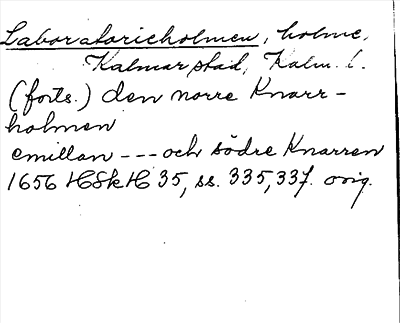 Laboratorieholmen, holme,
Kalmar stad, Kalm. l.
(forts.) den norre Knarr-
holmen
emillan --- och södre Knarren
1656 HSkH 35, ss. 335, 337. orig.